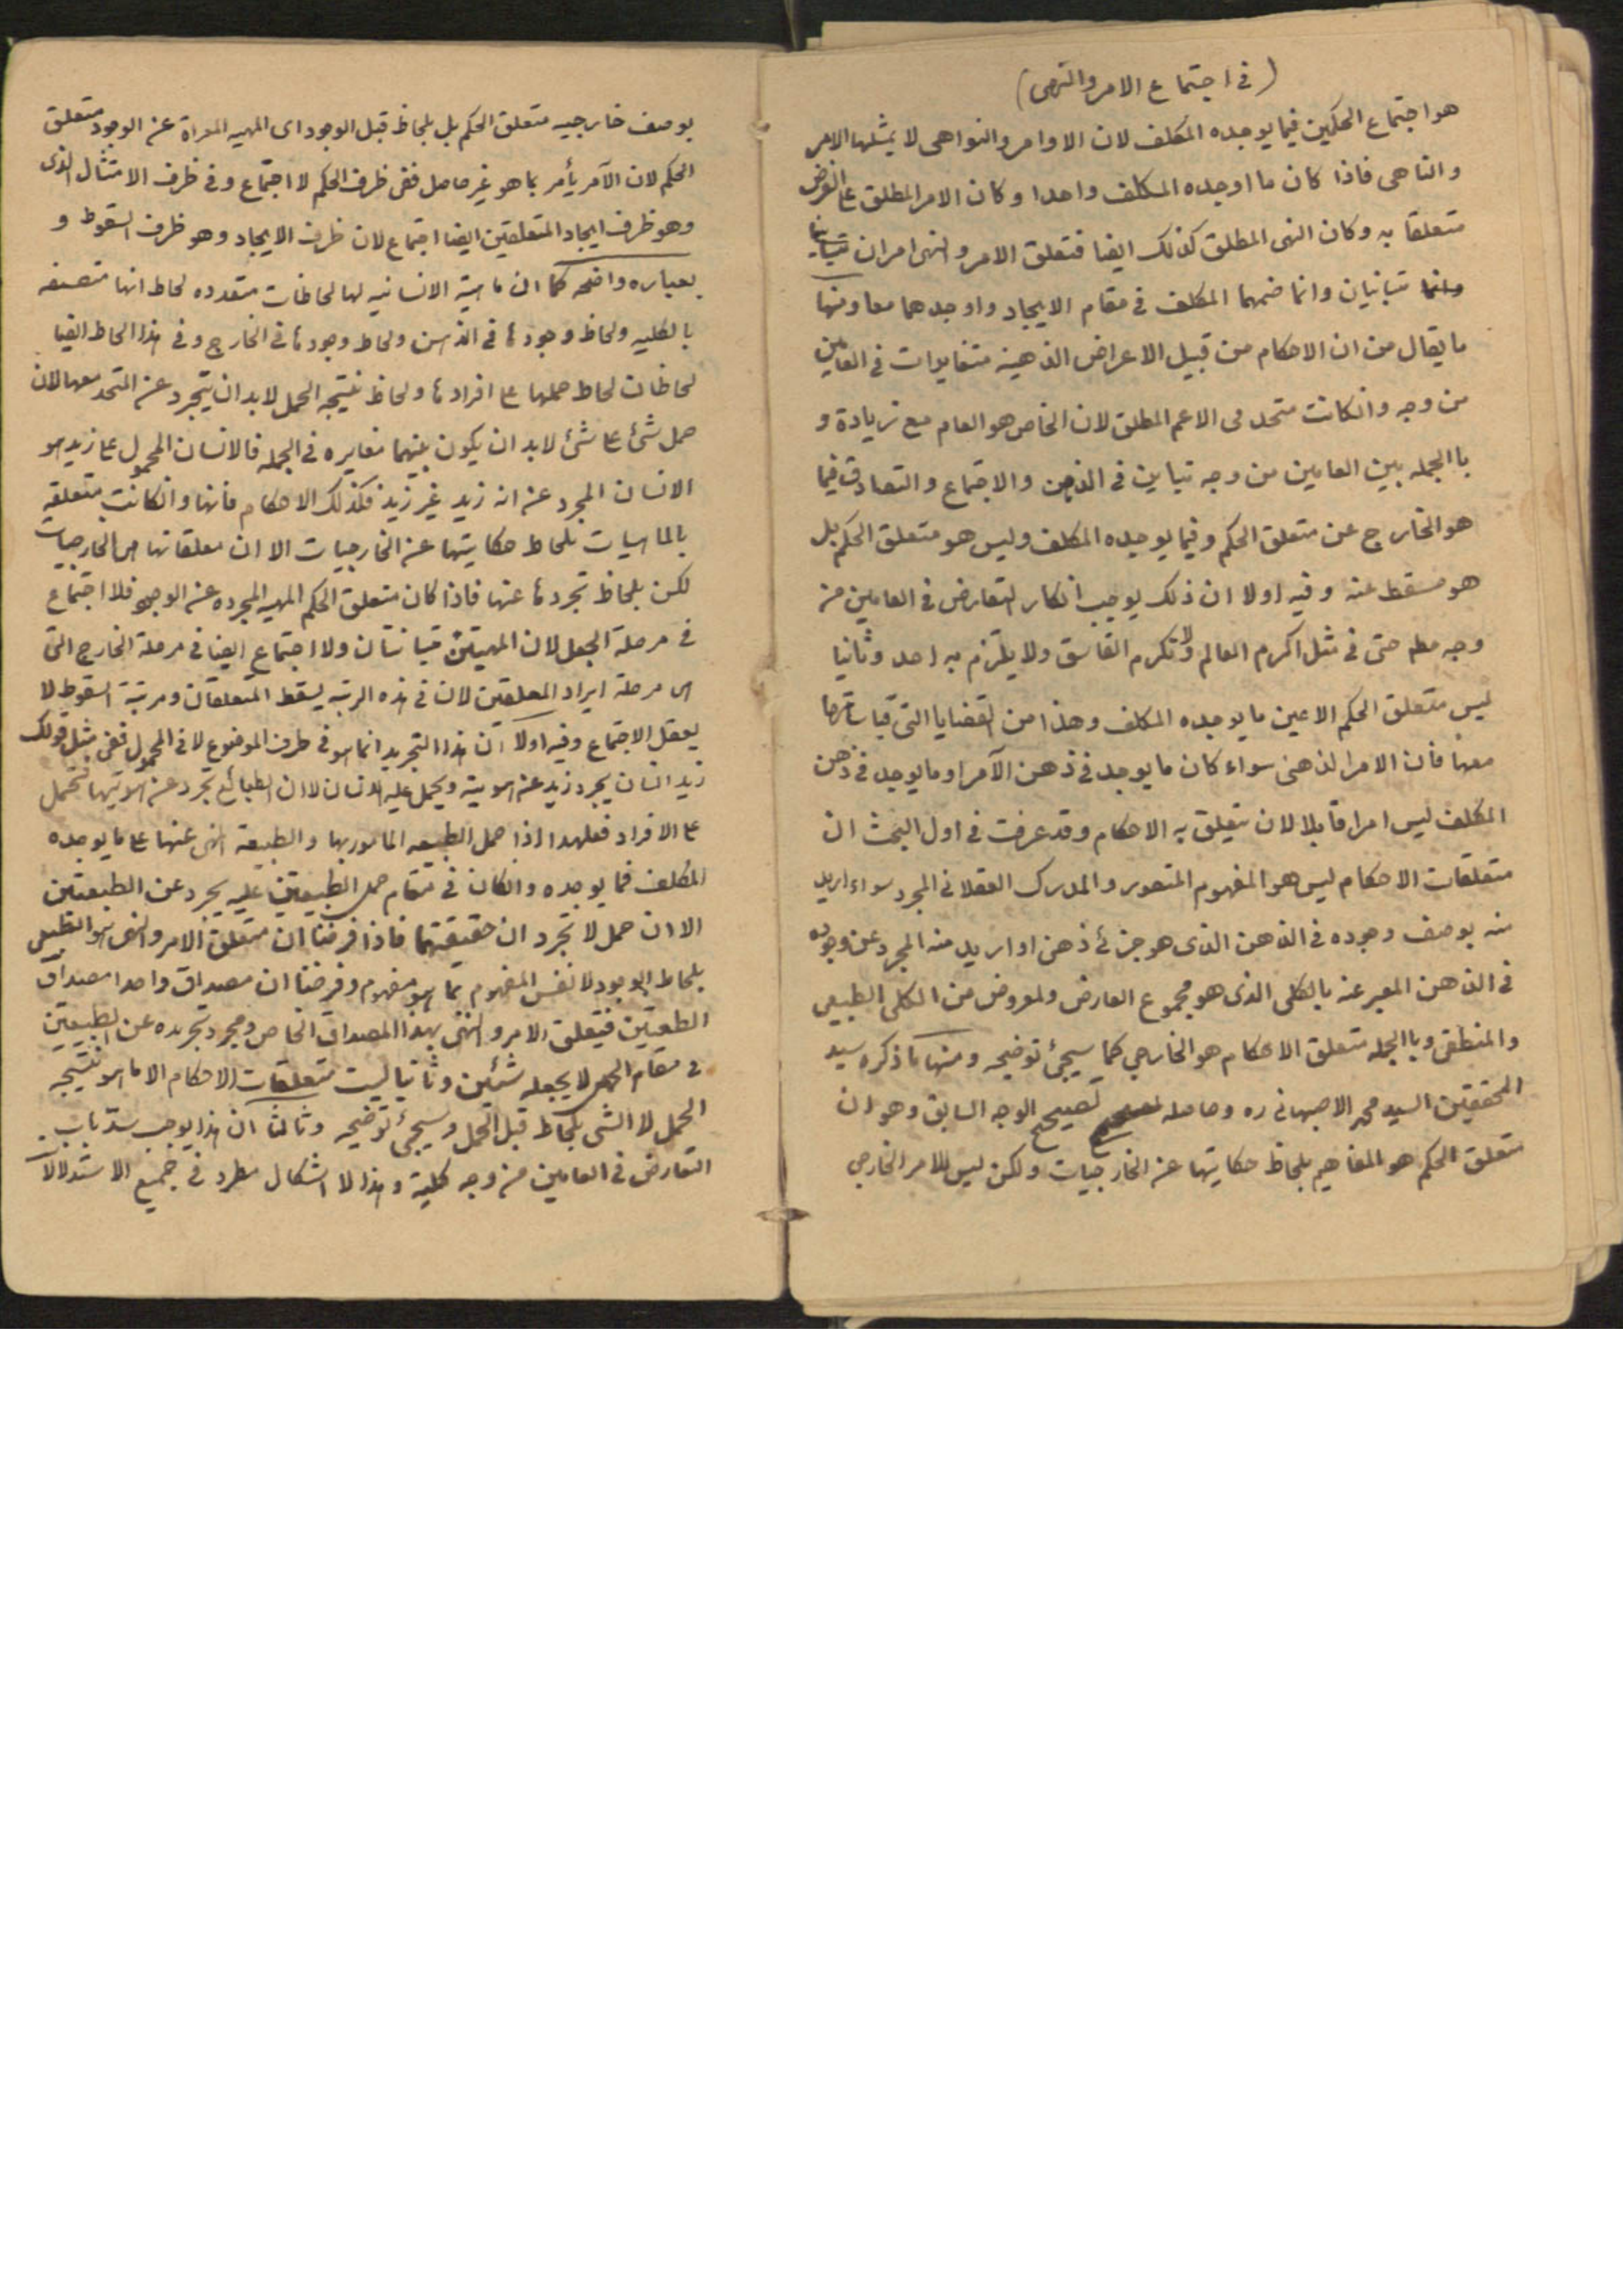 (في اجتماع الامر والنهى)
هو اجتماع الحكمين فيما يوجده المكلف لان الاوامر والنواهى لا يمثلها الامر
والناهى فاذا كان ما اوجده المكلف واحدا وكان الامر المطلق على الفرض
متعلقا به وكان النهى المطلق كذلك ايضا فتعلق الامر والنهى امران
متبانيان وانما ضمهما المكلف في مقام الايجاد واوجدهما معا ومنها
ما يقال من ان الاحكام من قبيل الاعراض الذهنية متغايرات في العامين
من وجه وانكانت متحد فى الاعم المطلق لان الخاص هو العام مع زيادة و
با الجمله بين العامين من وجه تباين في الذهن والاجتماع والتصادق فيما
هو الخارج عن متعلق الحكم وفيما يوجده المكلف وليس هو متعلق الحكم بل
هو مسقط عنه وفيه اولا ان ذلك يوجب انكار التعارض في العامين من
وجه مطلقا حتى في مثل اكرم العالم ولا تكرم الفاسق ولا يلتزم به احد وثانيا
ليس متعلق الحكم الا عين ما يوجده المكلف وهذا من القضايا التى قياساتها
معها فان الامر الذهنى سواء كان ما يوجد في ذهن الآمر او ما يوجد في ذهن
المكلف ليس امرا قابلا لان يتعلق به الاحكام وقد عرفت في اول البحث ان
متعلقات الاحكام ليس هو المفهوم المتصور والمدرك العقلاني المجرد سواء اريد
منه بوصف وجوده في الذهن الذى هو جزئ ذهن او اريد منه المجرد عن وجوده
في الذهن المعبر عنه بالكلى الذى هو مجموع العارض والمعروض من الكلى الطبيعى
والمنطقى وبا الجمله متعلق الاحكام هو الخارجي كما سيجئ توضيحه ومنها ما ذكره سيد
المحققين السيد محمد الاصبهانى ره وحاصله تصحيح الوجه السابق وهو ان
متعلق الحكم هو المفاهيم بلحاظ حكايتها عن الخارجيات ولكن ليس للامر الخارجي
بوصف خارجيه متعلق الحكم بل بلحاظ قبل الوجود اى المهيه المعراة عن الوجود متعلق
الحكم لان الآمر يأمر بما هو غير حاصل ففى ظرف الحكم لا اجتماع وفى ظرف الامتثال الذى
وهو ظرف ايجاد المتعلقين ايضا اجتماع لان ظرف الايجاد وهو ظرف السقوط و
بعباره واضحه كما ان ماهية الانسانيه لها لحاظات متعدده لحاظ انها متصفه
بالكليه ولحاظ وجودها في الذهن ولحاظ وجودها في الخارج وفى هذا الحاظ ايضا
لحاظان لحاظ حملها على افرادها ولحاظ نتيجه الحمل لابد ان يتجرد عن المتحد معها لان
حمل شئ على شئ لابد ان يكون بينهما مغايره في الجمله فالانسان المحمول على زيد هو
الانسان المجرد عن انه زيد غير زيد فكذلك الاحكام فانها وانكانت متعلقه
بالماهيات بلحاظ حكايتها عن الخارجيات الا ان معلقاتها هى الخارجيات
لكن بلحاظ تجردها عنها فاذا كان متعلق الحكم المهيه المجرده عن الوجود فلا اجتماع
في مرحلة الجعل لان المهيتين متبانتان ولا اجتماع ايضا في مرحلة الخارج التى
هى مرحلة ايراد المعلقين لان في هذه الرتبه يسقط المتعلقان ومرتبة السقوط لا
يعقل الاجتماع وفيه اولا ان هذا التجريد انما هو في طرف الموضوع لا فى المحمول ففى مثل قولك
زيد انسان يجرد زيد عن هويته ويحمل عليه الانسان لا ان الطبائع تجرد عن هويتها فتحمل
على الافراد فعلهذا اذا حمل الطبيعه المامور بها والطبيعة النهى عنها على ما يوجده
المكلف فما يوجده وانكان في مقام حمل الطبيعتين عليه يجرد عن الطبيعتين
الا ان حمل لا تجرد ان حقيقتهما فاذا فرضنا ان متعلق الامر والنهى هو الطبيعى
بلحاظ الوجود لا نفس المفهوم بما هو مفهوم وفرضنا ان مصداق واحدا مصداق
الطبعتين فيتعلق الامر والنهى بهذا المصداق الخاص ومجرد تجريده عن الطبيعتين
في مقام الحمل لا يجعله شيئين وثانيا ليست متعلقات الاحكام الا ما هو نتيجه
الحمل لا الشى بلحاظ قبل الحمل وسيجئ توضيحه وثالثا ان هذا يوجب سد باب
التعارض في العامين من وجه كلية وهذا لا اشكال مطرد في جميع الاستدلالات